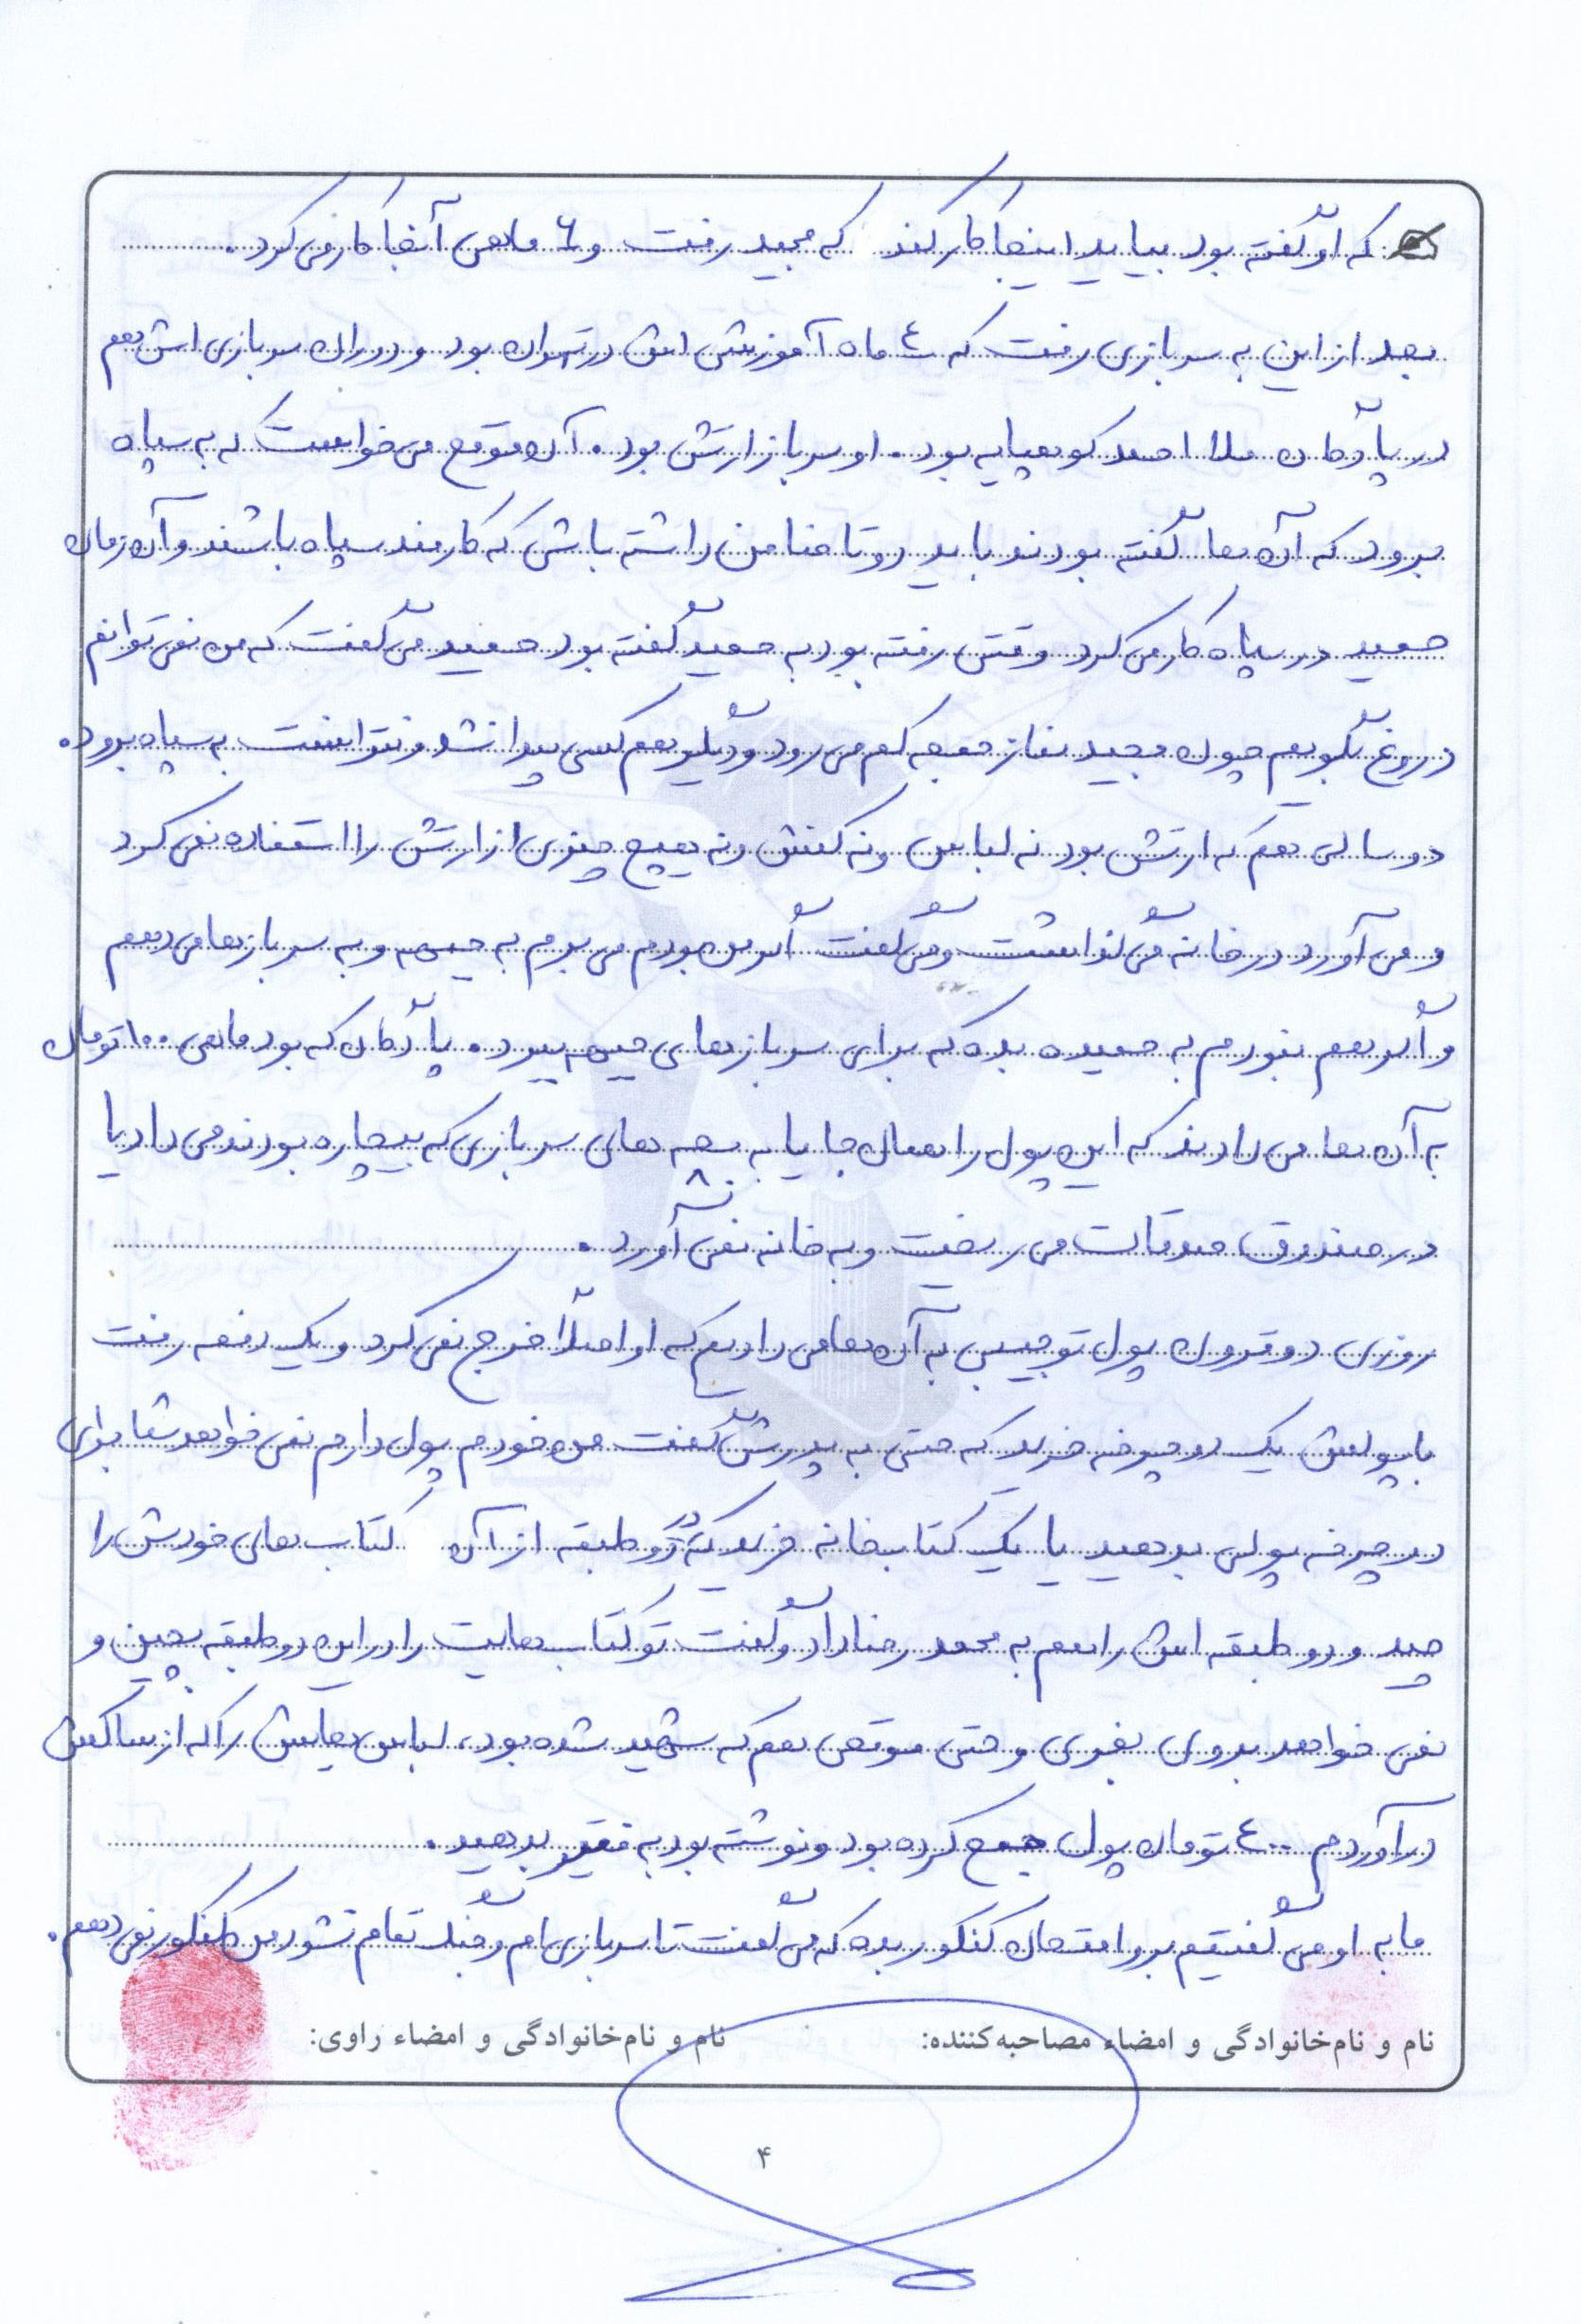 که او گفته بود بیاید اینجا کار کند که مجید رفت و ۶ ماهی آنجا کار می کرد.
بعد از این به سربازی رفت که ٤ ماه آموزشی اش در تهران بود و دوران سربازی اش هم
در پادگان ملا احمد کوهپایه بود. او سرباز ارتش بود. آن موقع می خواست که به سپاه
برود که آن ها گفته بودند باید دو تا ضامن داشته باشی که کارمند سپاه باشند و آن زمان
حمید در سپاه کار می کرد وقتی رفته بود به حمید گفته بود حمید می گفت که من نمی توانم
دروغ بگویم چون مجید نماز جمعه کم می رود و دیگر هم کسی پیدا نشد و نتوانست به سپاه برود.
دو سالی هم که ارتش بود نه لباس و نه کفش و نه هیچ چیزی از ارتش را استفاده نمی کرد
و می آورد در خانه می گذاشت و می گفت اگر من بودم می برم به جبهه و به سربازها می دهم
و اگر هم نبودم به حمیده بده که برای سربازهای جبهه ببرد. پادگان که بود ماهی ۱۰۰ تومان
به آن ها می دادند که این پول را همان جا یا به بچه های سربازی که بیچاره بودند می داد یا
در صندوق صدقات می ریخت و به خانه نمی آورد.
روزی دو قرون پول تو جیبی به آن ها می دادیم که او اصلاً خرج نمی کرد و یک دفعه رفت
با پولش یک دوچرخه خرید که حتی به پدرش گفت من خودم پول دارم نمی خواهد شما برای
دوچرخه پولی بدهید یا یک کتابخانه خرید که در دو طبقه از آن کتاب های خودش را
چید و دو طبقه اش را هم به محمد رضا داد و گفت تو کتاب هایت را در این دو طبقه بچین و
نمی خواهد بروی بخری و حتی موقعی هم که شهید شده بود، لباس هایش را که از ساکش
درآوردم ٤۰۰ تومان پول جمع کرده بود و نوشته بود به فقیر بدهید.
ما به او می گفتیم برو امتحان کنکور بده که می گفت تا سربازی ام و جنگ تمام نشود من کنکور نمی دهم.
نام و نام‌خانوادگی و امضاء مصاحبه‌کننده: نام و نام‌خانوادگی و امضاء راوی:
۴